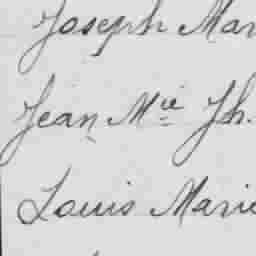 Joseph Mar
Jean Mie Jh.
Louis Marie